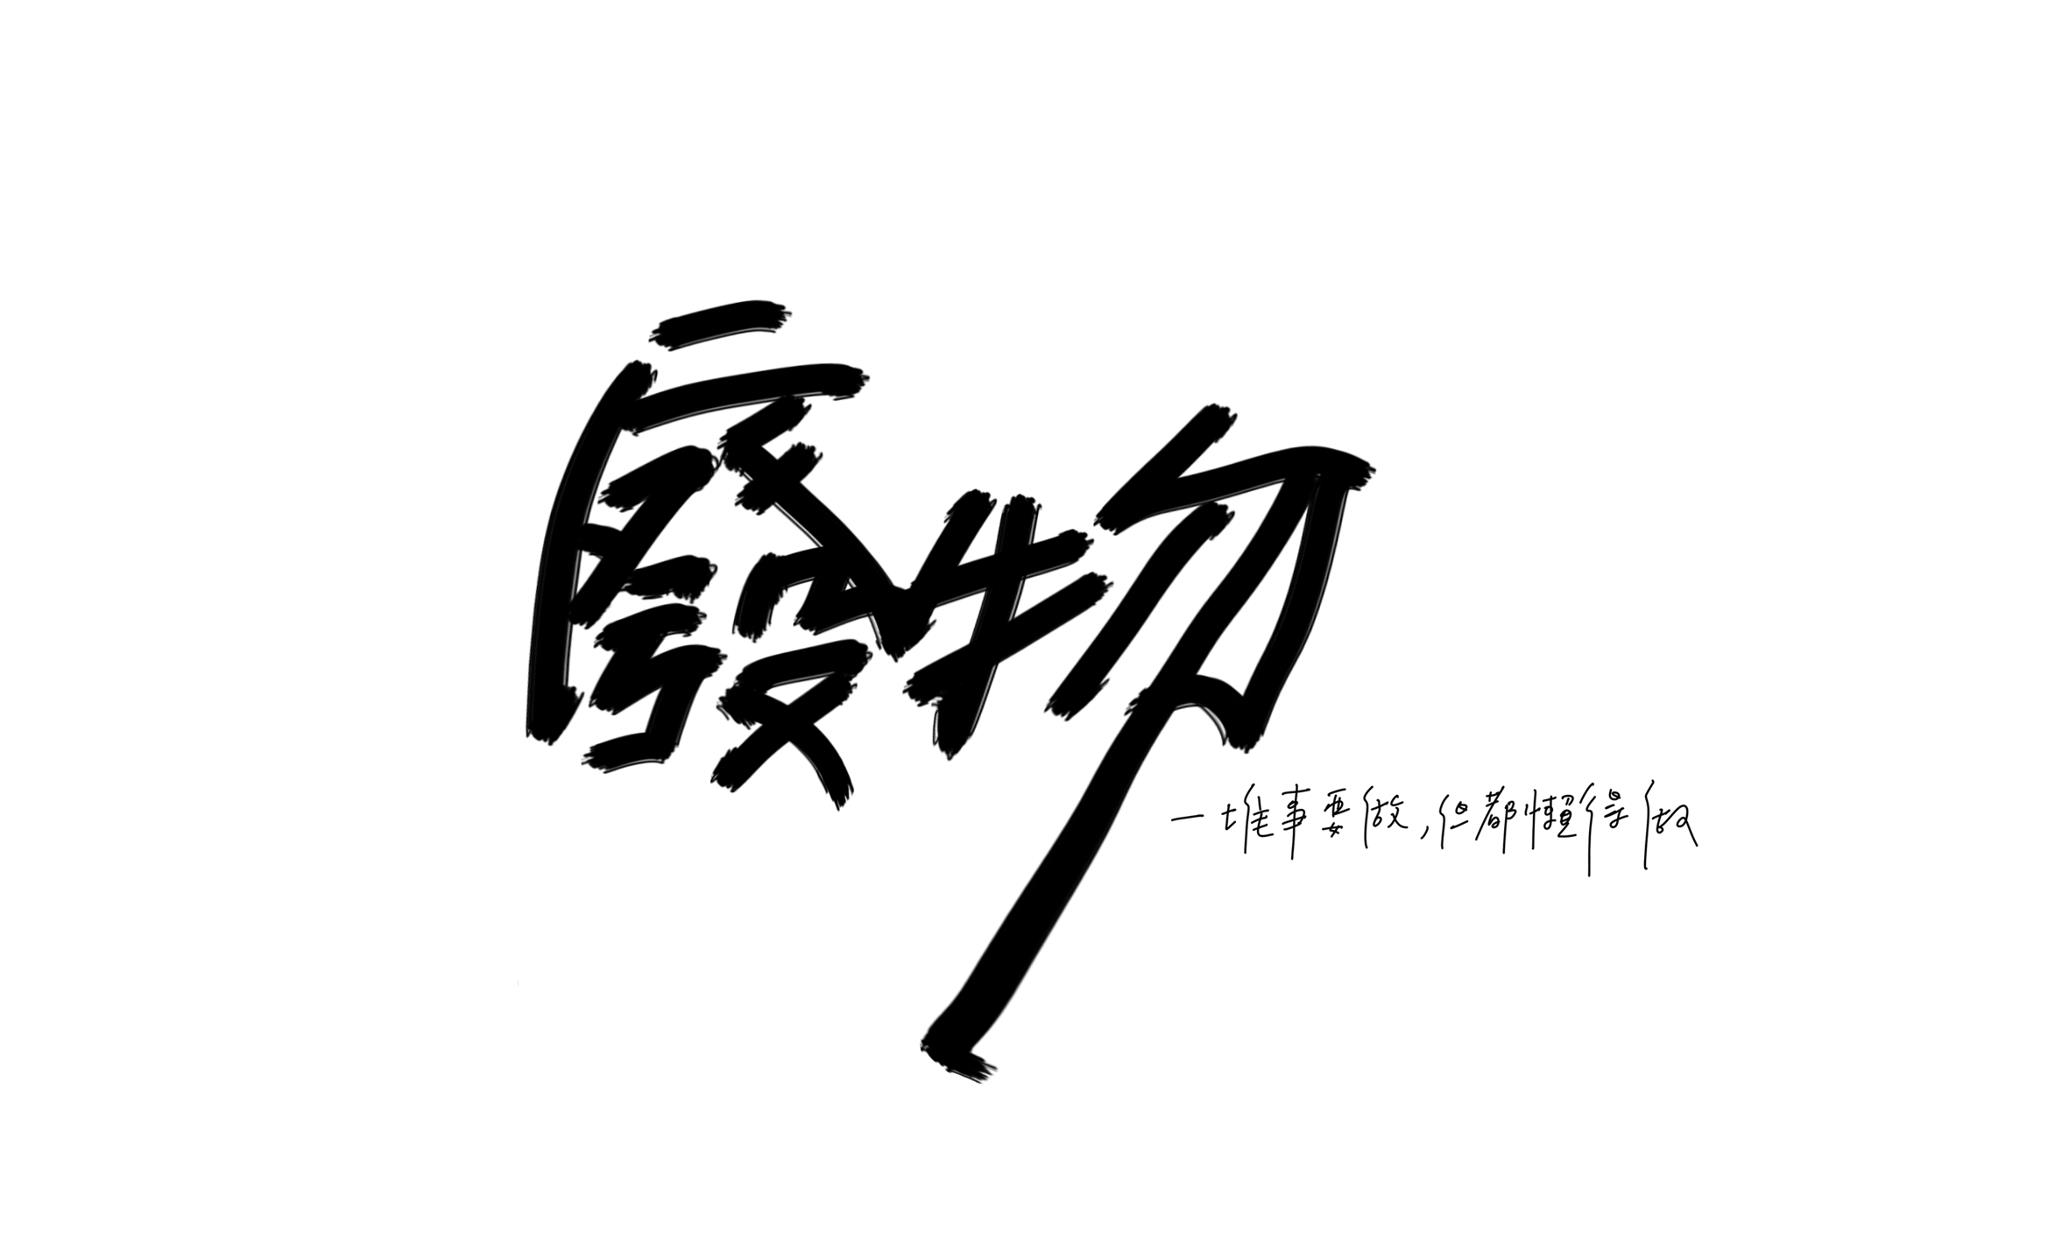 廢物
一堆事要做,但都懶得做